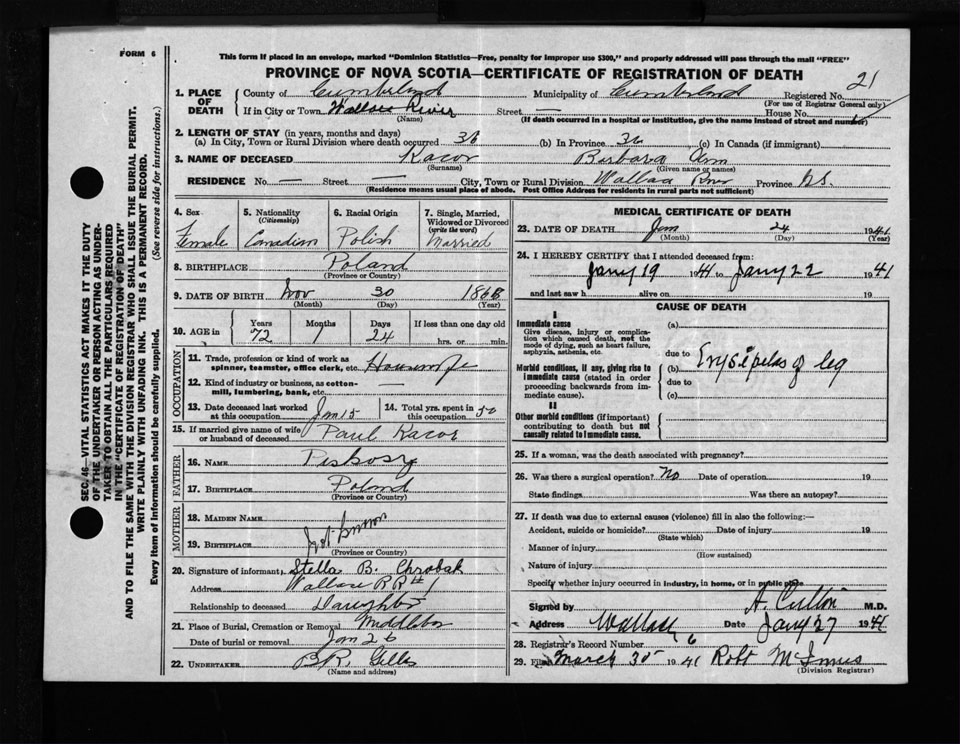 FORM 6
This form if placed in an envelope, marked "Dominion Statistics—Free, penalty for improper use $300," and properly addressed will pass through the mail "FREE"
PROVINCE OF NOVA SCOTIA—CERTIFICATE OF REGISTRATION OF DEATH
21
1. PLACE OF DEATH County of Cumberland Municipality of Cumberland Registered No.
(For use of Registrar General only)
If in City or Town Wallace River Street — House No.
(Name) (If death occurred in a hospital or institution, give the name instead of street and number)
2. LENGTH OF STAY (in years, months and days)
(a) In City, Town or Rural Division where death occurred 30 (b) In Province 30 (c) In Canada (if immigrant)
3. NAME OF DECEASED Kacor Barbara Ann
(Surname) (Given name or names)
RESIDENCE No. — Street — City, Town or Rural Division Wallace River Province N.S.
(Residence means usual place of abode. Post Office Address for residents in rural parts not sufficient)
SEC. 46—VITAL STATISTICS ACT MAKES IT THE DUTY
OF THE UNDERTAKER OR PERSON ACTING AS UNDER-
TAKER TO OBTAIN ALL THE PARTICULARS REQUIRED
IN THE "CERTIFICATE OF REGISTRATION OF DEATH"
AND TO FILE THE SAME WITH THE DIVISION REGISTRAR WHO SHALL ISSUE THE BURIAL PERMIT.
WRITE PLAINLY WITH UNFADING INK. THIS IS A PERMANENT RECORD.
Every item of Information should be carefully supplied. (See reverse side for instructions.)
4. Sex Female
5. Nationality (Citizenship) Canadian
6. Racial Origin Polish
7. Single, Married, Widowed or Divorced (write the word) Married
8. BIRTHPLACE Poland
(Province or Country)
9. DATE OF BIRTH Nov 30 1868
(Month) (Day) (Year)
10. AGE in Years Months Days If less than one day old
72 1 24 hrs. or min.
OCCUPATION
11. Trade, profession or kind of work as
spinner, teamster, office clerk, etc. Housewife
12. Kind of industry or business, as cotton-
mill, lumbering, bank, etc. —
13. Date deceased last worked at this occupation Jan 15
14. Total yrs. spent in this occupation 50
15. If married give name of wife or husband of deceased Paul Kacor
FATHER
16. Name
17. Birthplace Poland
(Province or Country)
MOTHER
18. Maiden Name
19. Birthplace
(Province or Country)
20. Signature of informant Stella B. Chrobak
Address Wallace RR # 1
Relationship to deceased Daughter
21. Place of Burial, Cremation or Removal Middleboro
Date of burial or removal Jan 26
22. UNDERTAKER
(Name and address)
MEDICAL CERTIFICATE OF DEATH
23. DATE OF DEATH Jan 24 1941
(Month) (Day) (Year)
24. I HEREBY CERTIFY that I attended deceased from:
Jany 19 1941 to Jany 22 1941
and last saw h alive on 19
CAUSE OF DEATH
I
Immediate cause
Give disease, injury or complica-
tion which caused death, not the
mode of dying, such as heart failure,
asphyxia, asthenia, etc.
(a)
due to
Morbid conditions, if any, giving rise to
immediate cause (stated in order
proceeding backwards from im-
mediate cause).
(b) Erysipelas of leg
due to
(c)
II
Other morbid conditions (if important)
contributing to death but not
causally related to immediate cause.
25. If a woman, was the death associated with pregnancy?
26. Was there a surgical operation? No Date of operation 19
State findings Was there an autopsy?
27. If death was due to external causes (violence) fill in also the following:—
Accident, suicide or homicide? Date of injury 19
(State which)
Manner of injury
(How sustained)
Nature of injury
Specify whether injury occurred in industry, in home, or in public place
Signed by M.D.
Address Wallace Date Jany 27 1941
28. Registrar's Record Number 6
29. Filed March 30 1941 Robt McInnis
(Division Registrar)